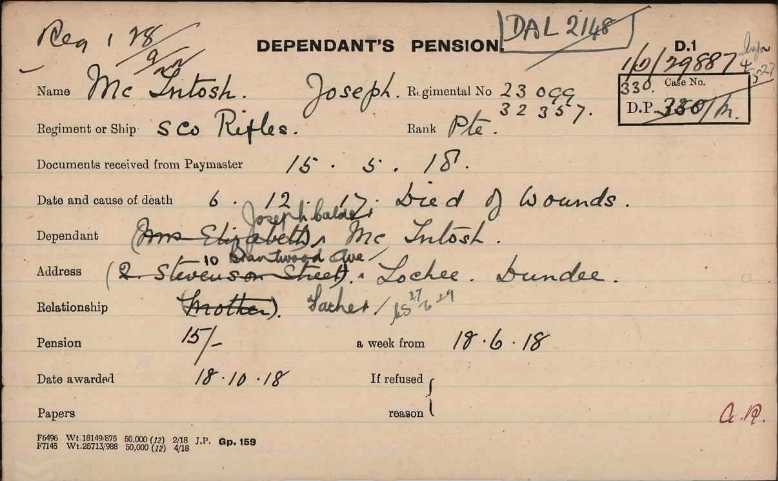 Reg 1 28/9/22
DAL 2148
DEPENDANT'S PENSION.
D.1
1/D/29887
Name Mc Intosh. Joseph. Regimental No 23099
32357.
Case No.
330
D.P. 330/M.
Regiment or Ship Sco Rifles. Rank Pte.
Documents received from Paymaster 15. 5. 18.
Date and cause of death 6. 12. 17. Died of Wounds.
Joseph Calder
Dependant (Mrs Elizabeth) Mc Intosh.
10 Brantwood Ave
Address (2 Stevenson Street). Lochee. Dundee.
Relationship (Mother). Father / 27/6/29
Pension 15/- a week from 18.6.18
Date awarded 18.10.18 If refused
Papers reason
F6496 Wt.18149/875 50,000 (12) 2/18 J.P. Gp. 159
F7145 Wt.26713/988 50,000 (12) 4/18